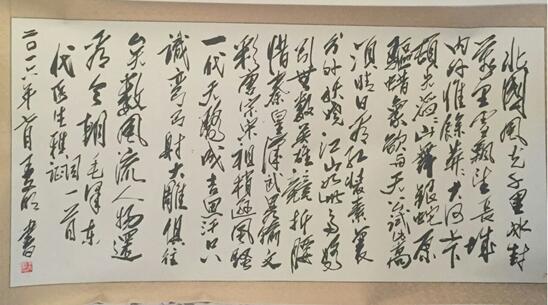 北國風光千里冰封
萬里雪飄望長城
内外惟餘莽莽大河上下
頓失滔滔山舞銀蛇原
驅蠟象欲與天公試比高
須晴日看紅裝素裹
分外妖嬈江山如此多嬌
引無數英雄競折腰
惜秦皇漢武略輸文
彩唐宗宋祖稍遜風騷
一代天驕成吉思汗只
識彎弓射大雕俱往
矣數風流人物還
看今朝毛澤東
詞一首
代医生雅正
二〇一六年 書